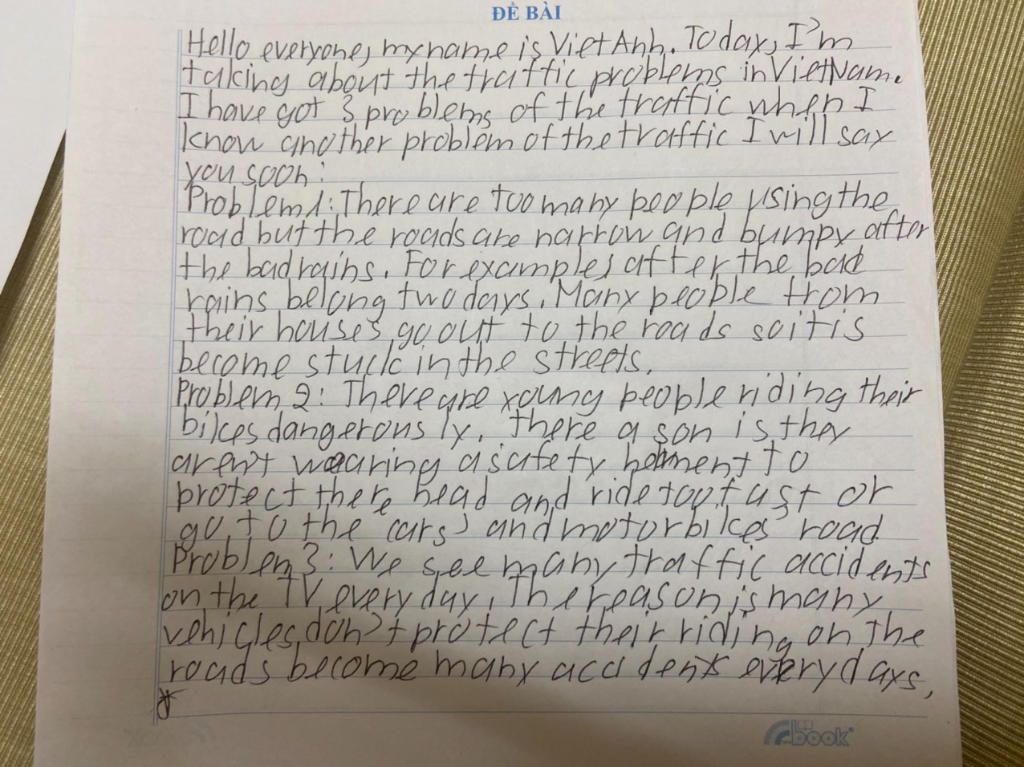 ĐỀ BÀI
Hello everyone, my name is Viet Anh. Today, I'm
talking about the traffic problems in VietNam.
I have got 3 problems of the traffic when I
know another problem of the traffic I will say
you soon:
Problem 1: There are too many people using the
road but the roads are narrow and bumpy after
the bad rains. For examples, after the bad
rains belong two days. Many people from
their houses go out to the roads so it is
become stuck in the streets.
Problem 2: There are young people riding their
bikes dangerously. There a son is they
aren't wearing a safety helment to
protect there head and ride too fast or
go to the cars' and motorbikes' road
Problem 3: We see many traffic accidents
on the TV every day. The reason is many
vehicles don't protect their riding on the
roads become many accidents every days.
book